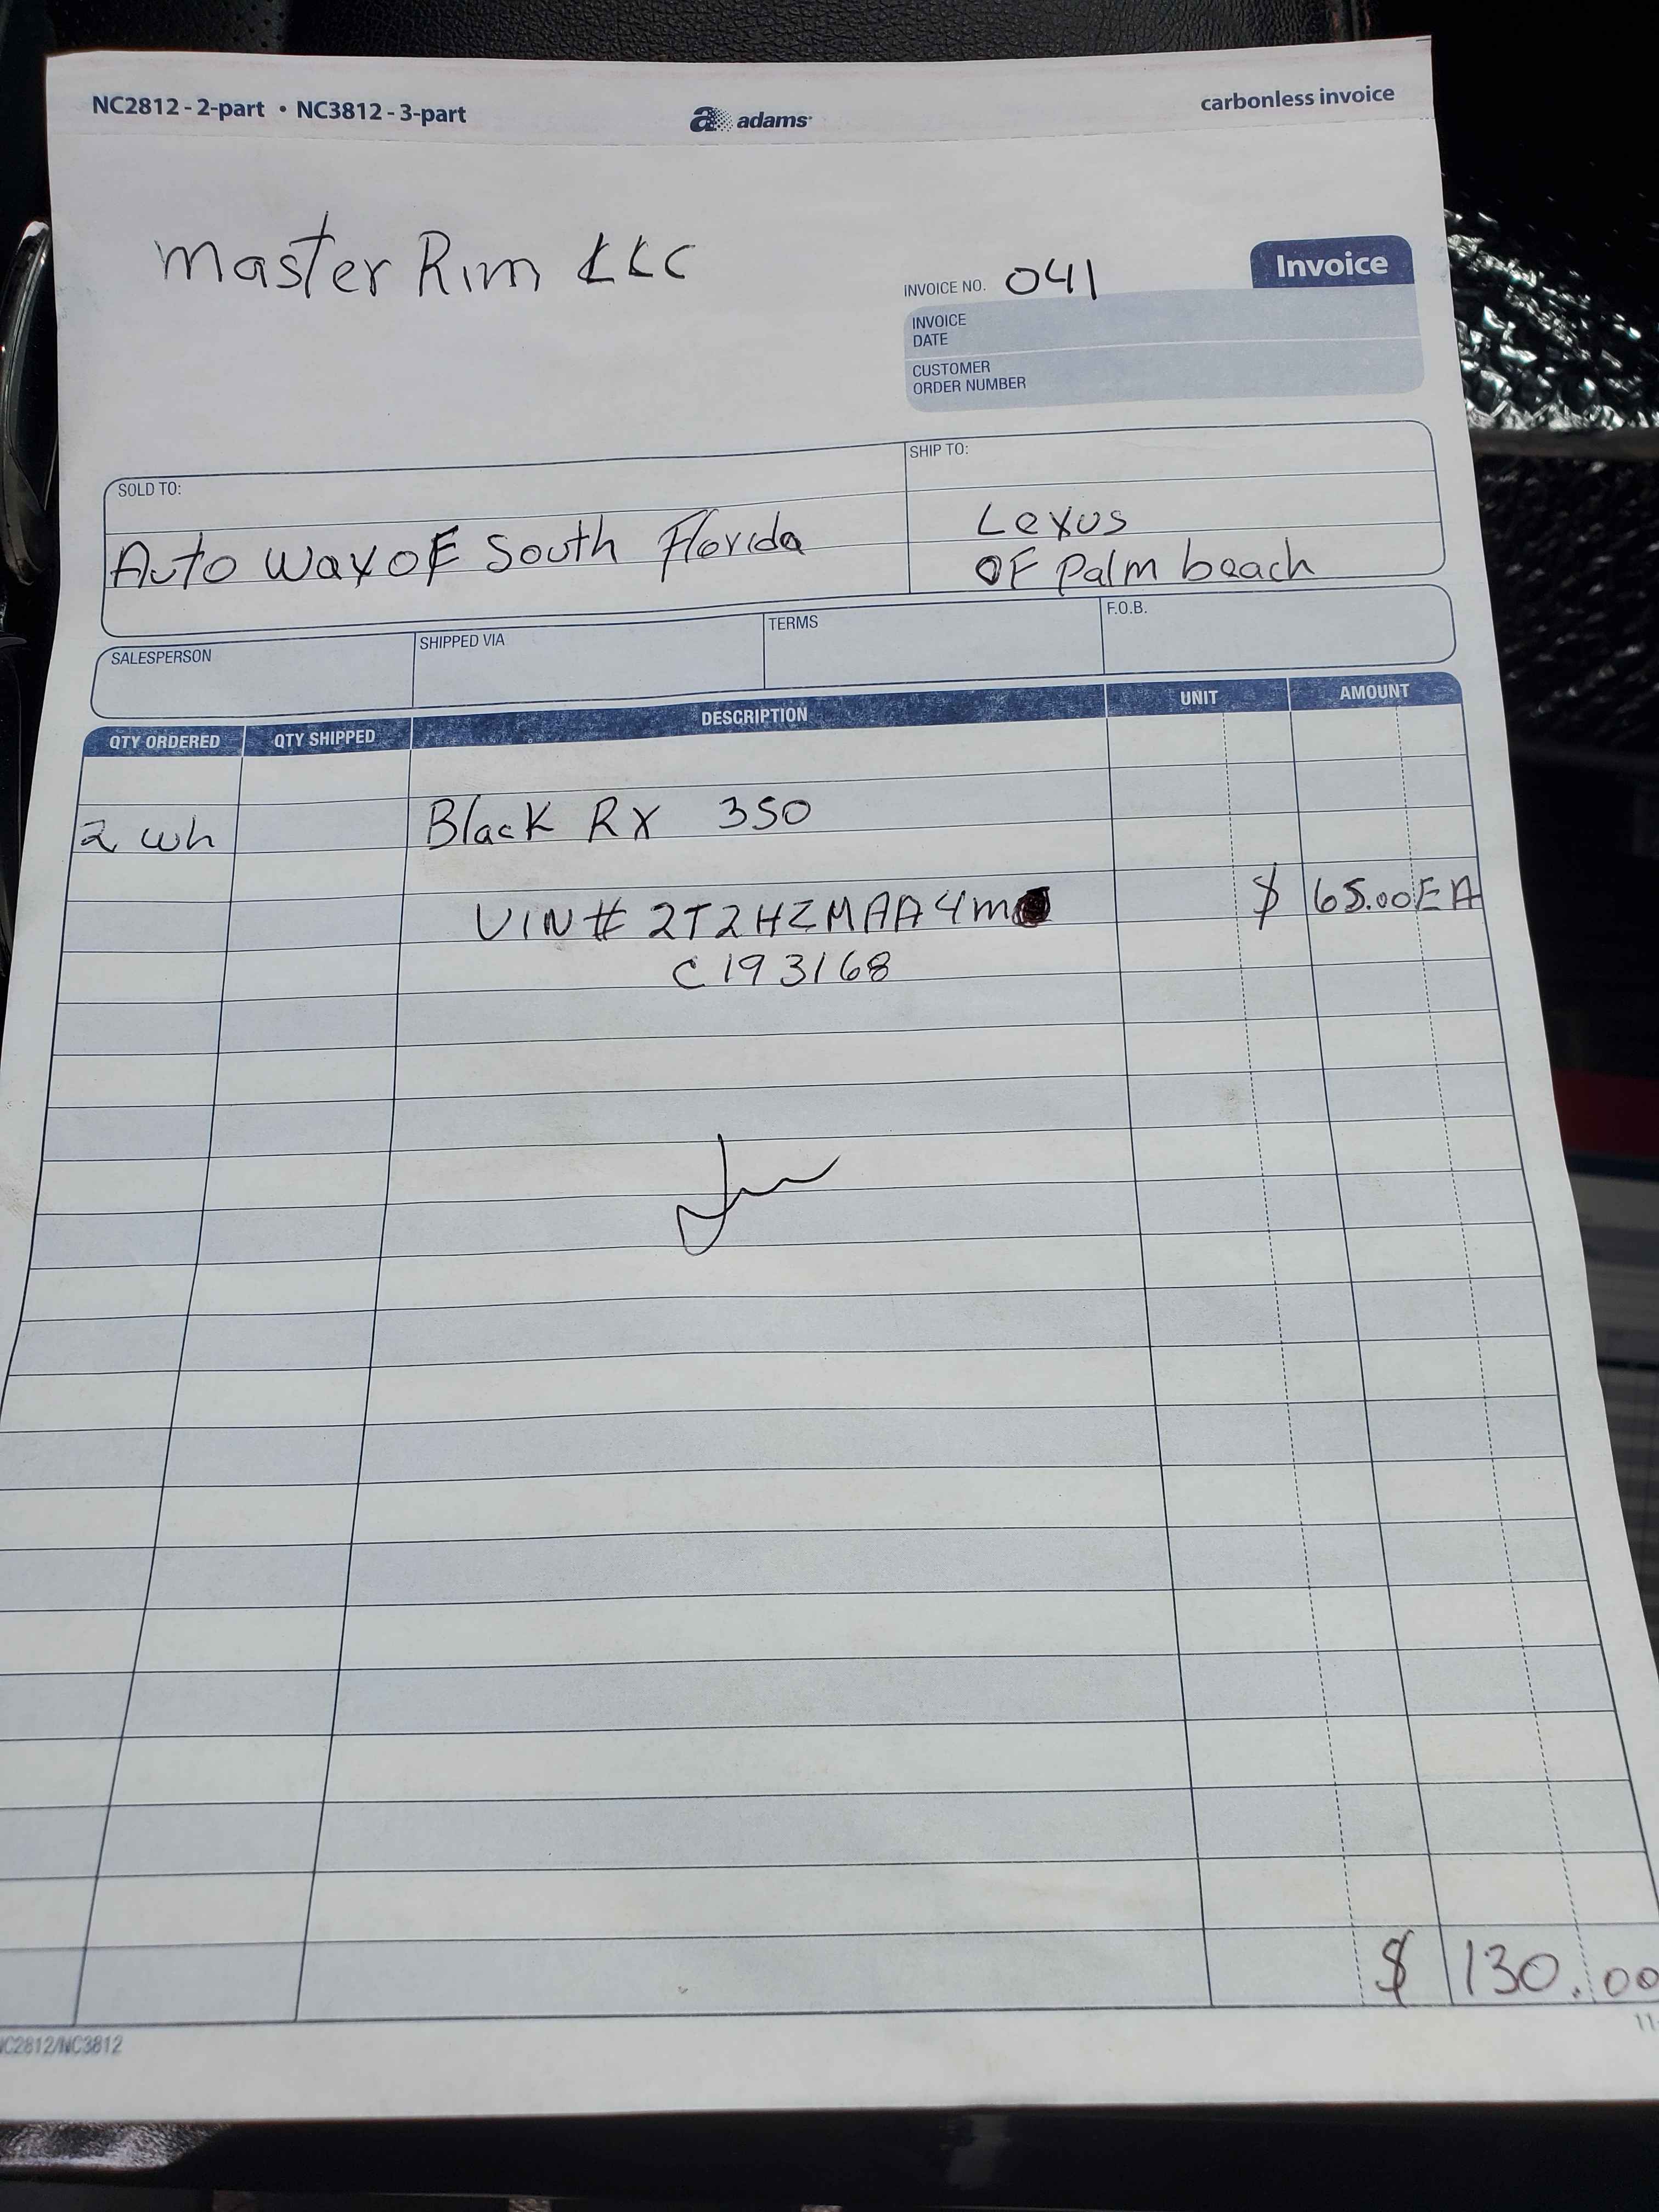 NC2812 - 2-part • NC3812 - 3-part
adams
carbonless invoice
Master Rim LLC
Invoice
INVOICE NO. 041
INVOICE
DATE
CUSTOMER
ORDER NUMBER
SOLD TO:
Auto Wax OF South Florida
SHIP TO:
Lexus
OF Palm beach
SALESPERSON
SHIPPED VIA
TERMS
F.O.B.
QTY ORDERED QTY SHIPPED DESCRIPTION UNIT AMOUNT
2 wh Black RX 350
VIN# 2T2HZMAA4M $ 65.00 EA
C193168
$ 130.00
NC2812/NC3812